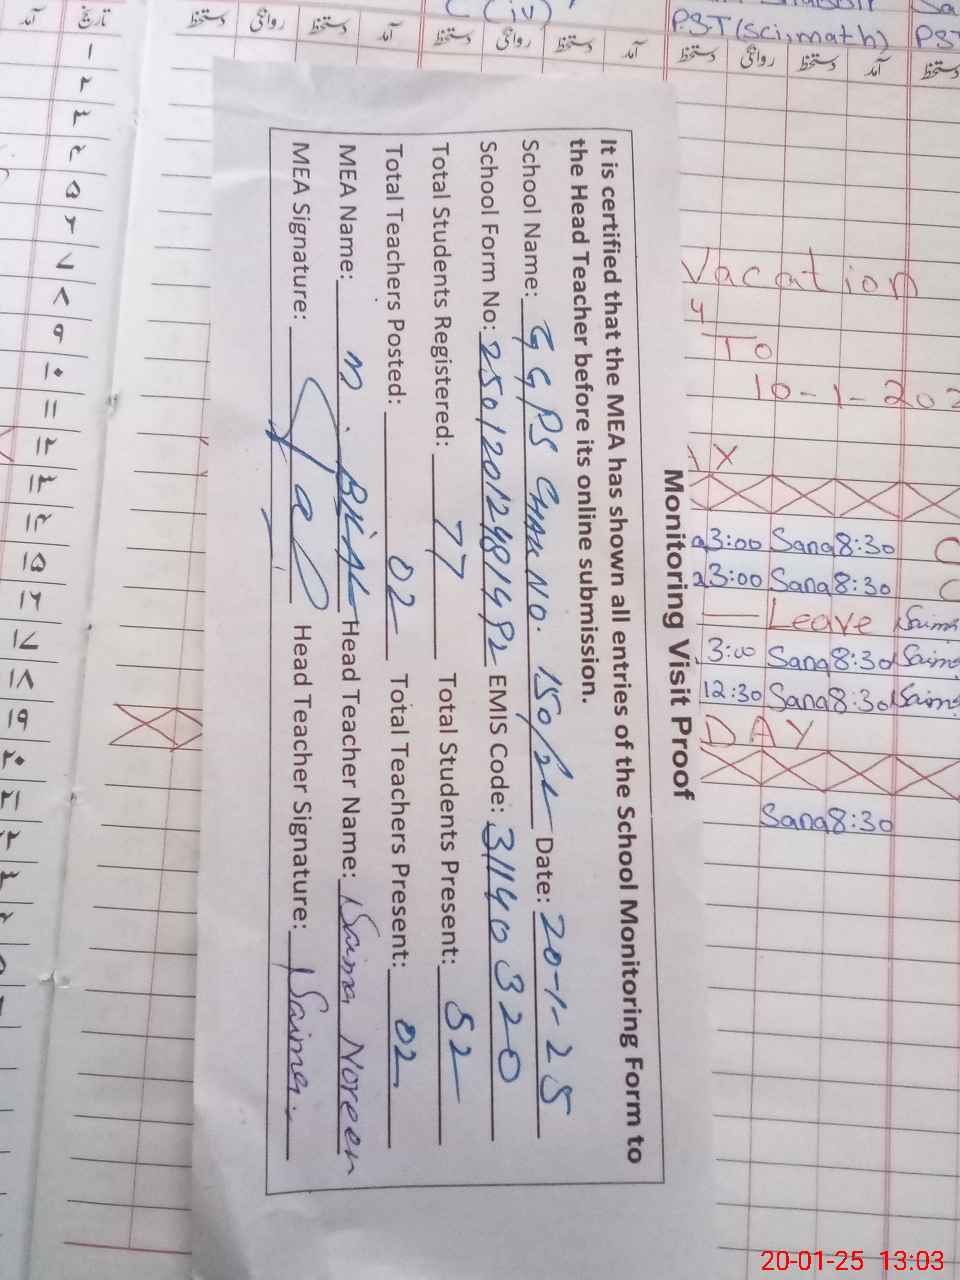 Monitoring Visit Proof
It is certified that the MEA has shown all entries of the School Monitoring Form to
the Head Teacher before its online submission.
School Name: GGPS Chak No. 150/2L Date: 20-1-25
School Form No: 25012012481492 EMIS Code: 31140320
Total Students Registered: 77 Total Students Present: 52
Total Teachers Posted: 02 Total Teachers Present: 02
MEA Name: M. Bilal Head Teacher Name: Saima Noreen
MEA Signature: Head Teacher Signature: Saima
PST (sci, math) PST
آمد دستخط روانگی دستخط آمد دستخط روانگی دستخط آمد دستخط روانگی دستخط
تاریخ آمد
Vacation
To
10-1-202
3:00 Sana 8:30
3:00 Sana 8:30
Leave Saima
3:00 Sana 8:30 Saima
12:30 Sana 8:30 Saima
DAY
Sana 8:30
۱
۲
۳
۴
۵
۶
۷
۸
۹
۱۰
۱۱
۱۲
۱۳
۱۴
۱۵
۱۶
۱۷
۱۸
۱۹
۲۰
۲۱
۲۲
۲۳
20-01-25 13:03